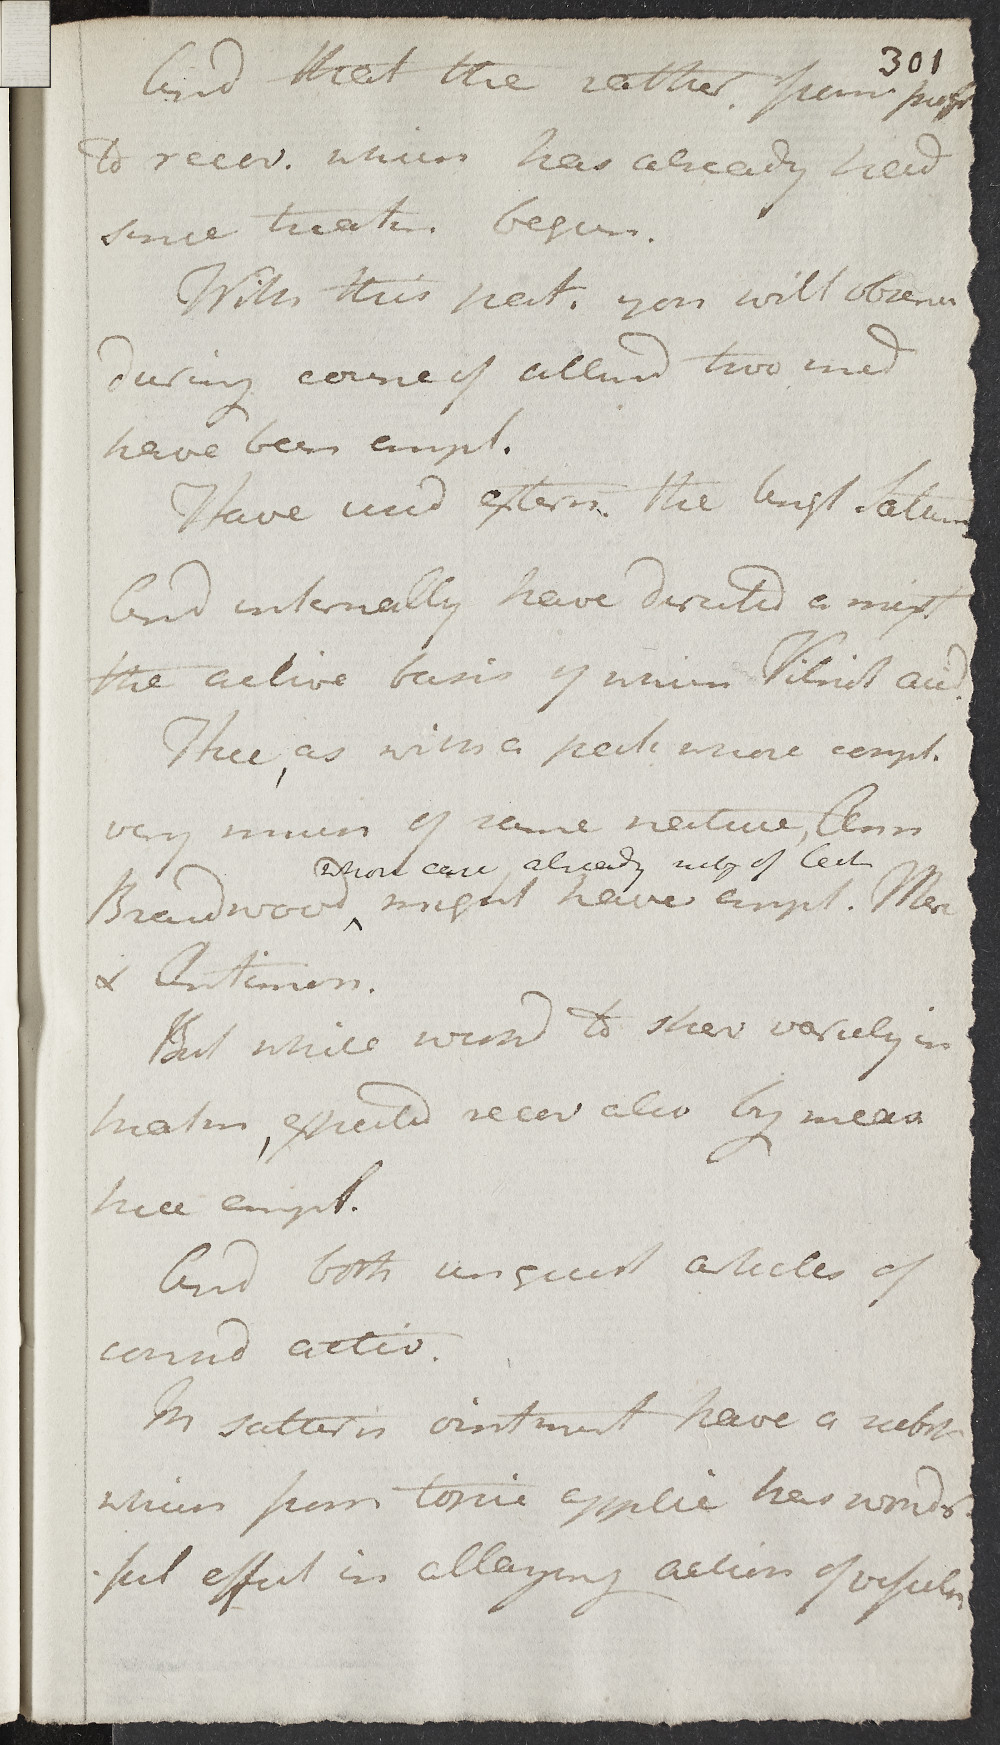 301
And that the rather from progr
to recov. which has already had
since treatm. begun.
With this pat. you will observe
during course of attend two med
have been empl.
Have used extern. the Ungt Saturn
And internally have directed a mixt
the active basis of which Vitriol acid.
Here, as with a patt whose compl.
very much of same nature, Ann
whose case already subj of Lect
Braidwood, might have empl. Merc
& Antimon.
But while wishd to shew variety in
treatm, expected recov also by means
here empl.
And both unquest articles of
consid activ.
In saturn ointment have a subst
which from tonic applic has wonder
ful effect in allaying action of vessels